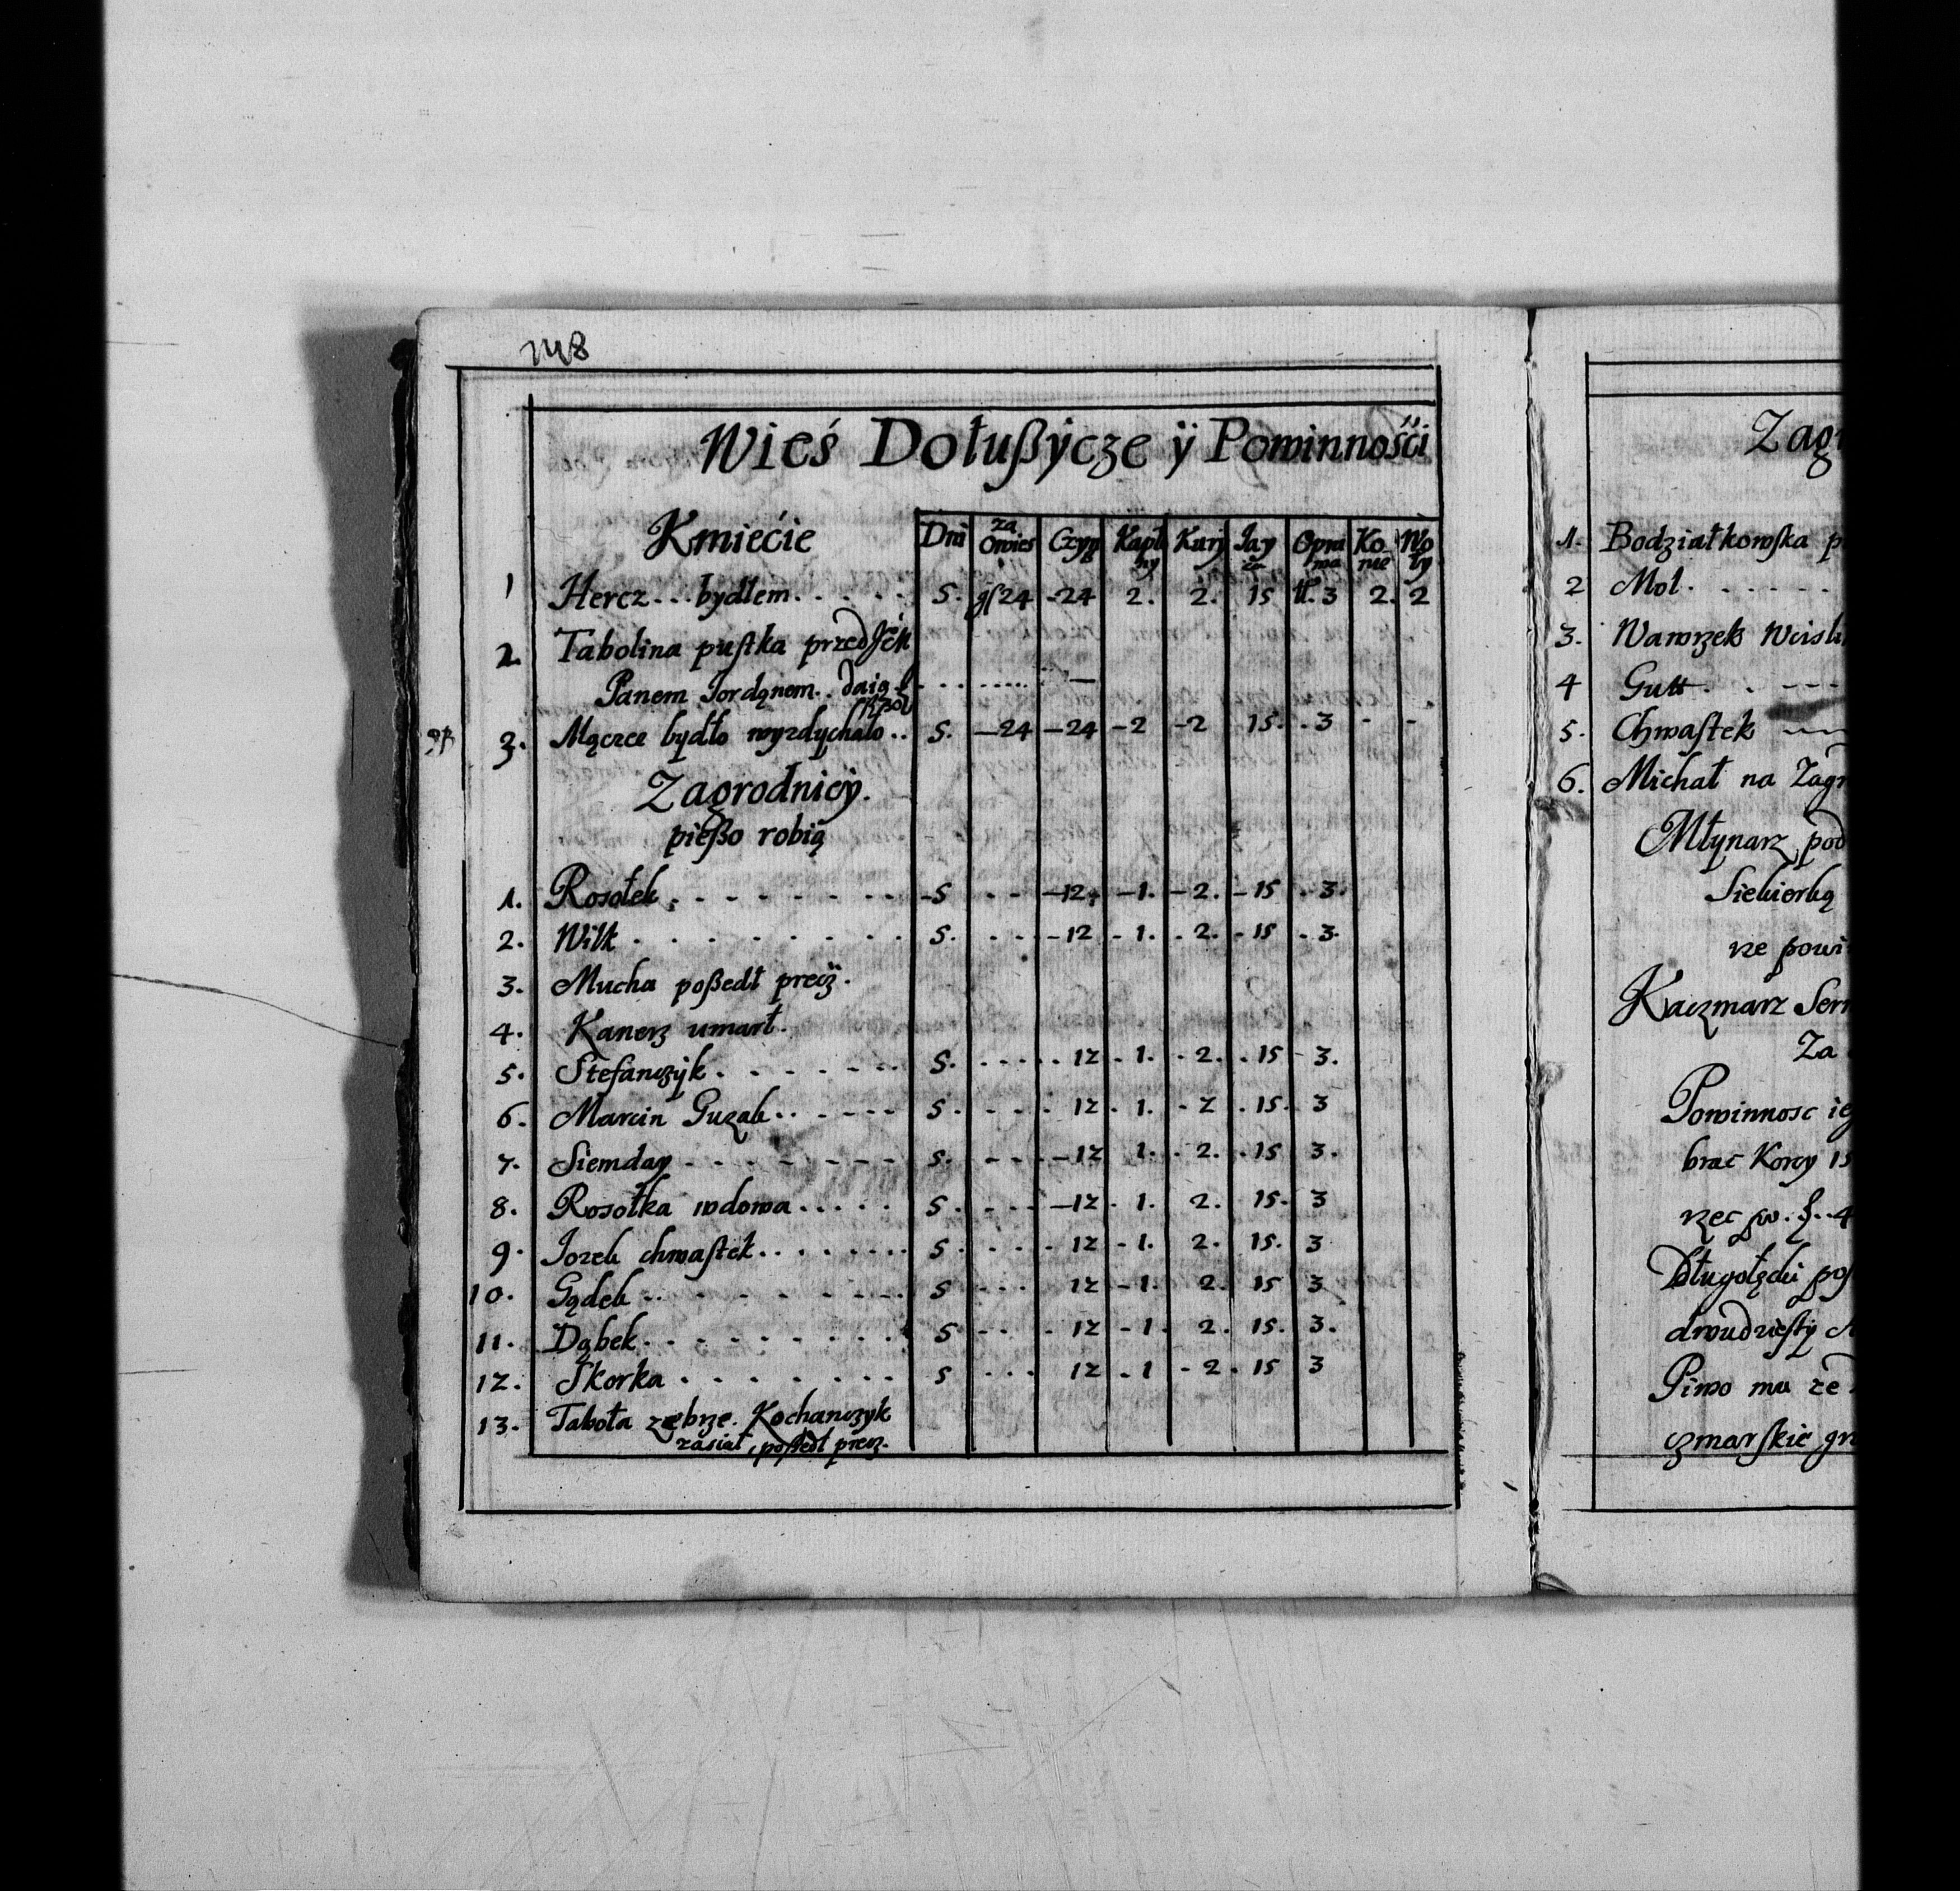 Wieś Dołußÿcze ÿ Powinności
Kmiećie Dni za Owies Czyn Kapłny Kurÿ Iayza Oprawa Konie Woły
1 Hercz... bydłem. . . . . 5. gſ 24 -24 2. 2. 15 tl. 3 2. 2
2. Tabolina puſtka przed
Panem Iordąnem..
3. Mączce bydło wyzdychało.. 5. —24 —24 -2 -2 15. . 3 - -
Zagrodnicÿ.
pießo robią
1. Rosołek . - - - - - - -5 . - - —12 —1. —2. —15 . 3.
2. Wilk . . . . . . . . 5. . - - -12 - 1. - 2. - 15 . 3.
3. Mucha poßedł precz.
4. Kanerz umarł.
5. Stefanczÿk . . - - - - - 5. . - - . 12 - 1. - 2. . 15 - 3.
6. Marcin Guzab . . - - - - 5. . - - . 12 . 1. - 2 . 15. 3
7. Siemday - - - - - - - 5. - - - —12 1. - 2. . 15 3.
8. Rosołka wdowa . . . . . 5. . - - —12 . 1. 2. 15. 3
9. Iozeb chwaſtek . . . . . . . 5. . . . . 12 - 1. 2. 15. 3
10. Gądeb . . - - - - - - 5 . . . 12 - 1. 2. 15 3
11. Dąbek . - - - - - - - . 5 . . . 12 - 1. 2. 15. 3.
12. Skorka . . . . . . . 5 . . . 12 . 1 - 2. 15 3
13. Taboła Kochanczÿk
zasiał, poſzedł precz.
Zagr
1. Bodziałkowſka p
2 Mol. . . . . . .
3. Wawrzek Wcisli
4 Gutt . . - - -
5. Chwaſtek
6. Michał na Zagr
Młynarz pod
Siekierką
ze powi
Kaczmarz Ser
Za
Powinnosc ie
brac Korcy 15
rzec
Długołęcki poſ
dwudzieſtÿ
Piwo ma ze
czmarſkie gr